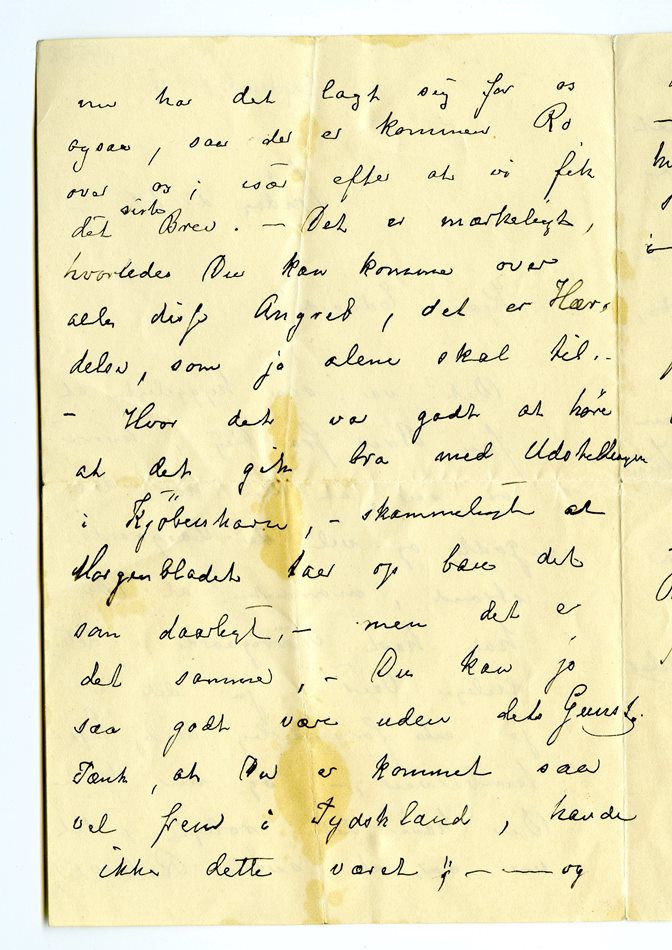 nu har det lagt sig for os
ogsaa, saa der er kommen Ro
over os, især efter at vi fik
det siste Brev. — Det er mærkeligt,
hvorledes Du kan komme over
alle disse Angreb, det er Hær-
delse, som jo alene skal til. -
- Hvor det var godt at høre
at det gik bra med Udstillingen
i Kjöbenhavn, - skammeligt at
Morgenbladet taer op bare det
som daarligt, - men det er
det samme, - Du kan jo
saa godt være uden dets Gunst.
Tænk, at Du er kommet saa
vel frem i Tydskland, havde
ikke dette været !! — — og